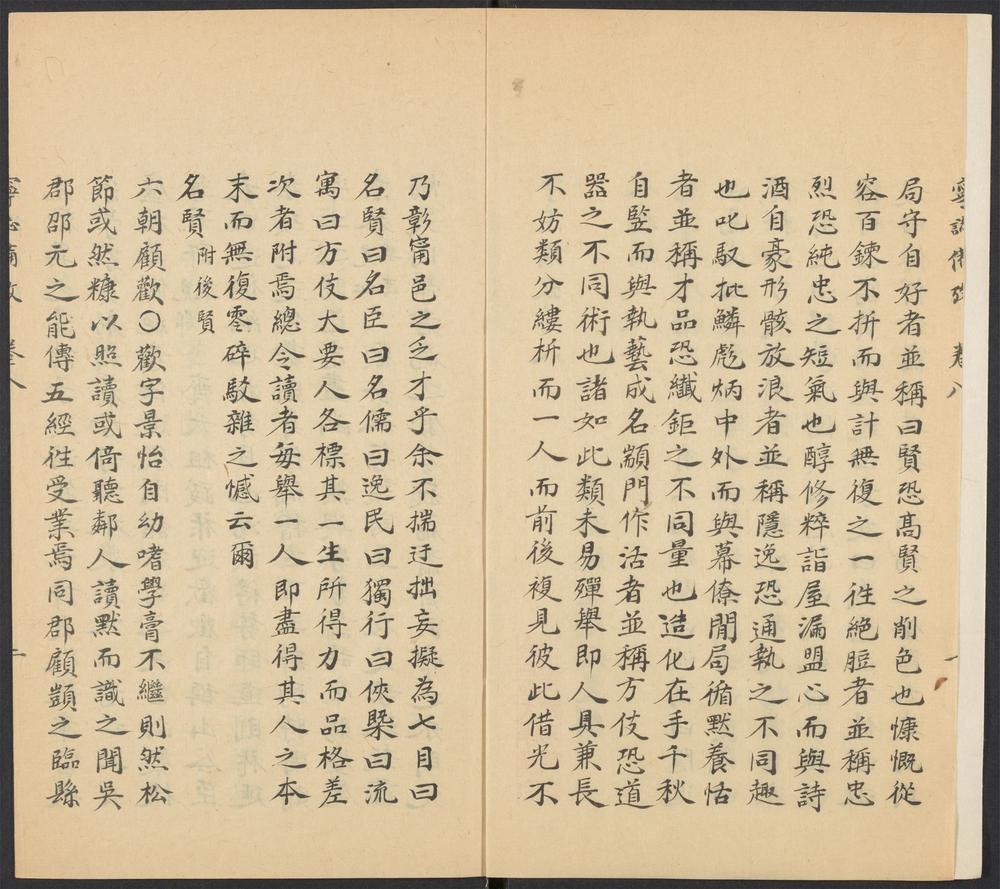 局守自好者並稱曰賢恐髙賢之削色也慷慨從
容百鍊不折而與計無復之一徃絶脰者並稱忠
烈恐純忠之短氣也醇修粹詣屋漏盟心而與詩
酒自豪形骸放浪者並稱隱逸恐通執之不同趣
也叱馭批鱗彪炳中外而與幕僚閒局循默養恬
者並稱才品恐纖鉅之不同量也造化在手千秋
自監而與執藝成名顓門作活者並稱方伎恐道
器之不同術也諸如此類未易殫舉即人具兼長
不妨類分縷析而一人而前後複見彼此借光不
乃彰甯邑之乏才乎余不揣迂拙妄擬為七目曰
名賢曰名臣曰名儒曰逸民曰獨行曰俠槩曰流
寓曰方伎大要人各標其一生所得力而品格差
次者附焉總令讀者每舉一人即盡得其人之本
末而無復零碎駁雜之憾云爾
名賢 附後賢
六朝顧歡〇歡字景怡自幼嗜學膏不繼則然松
節或然糠以照讀或倚聽鄰人讀默而識之聞吳
郡邵元之能傳五經徃受業焉同郡顧顗之臨縣
卷八 一